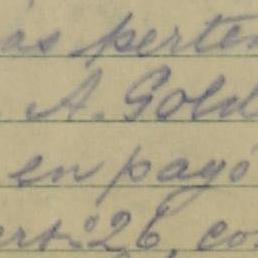 ás perten
A. Gold
en pagó
ert: 26, co